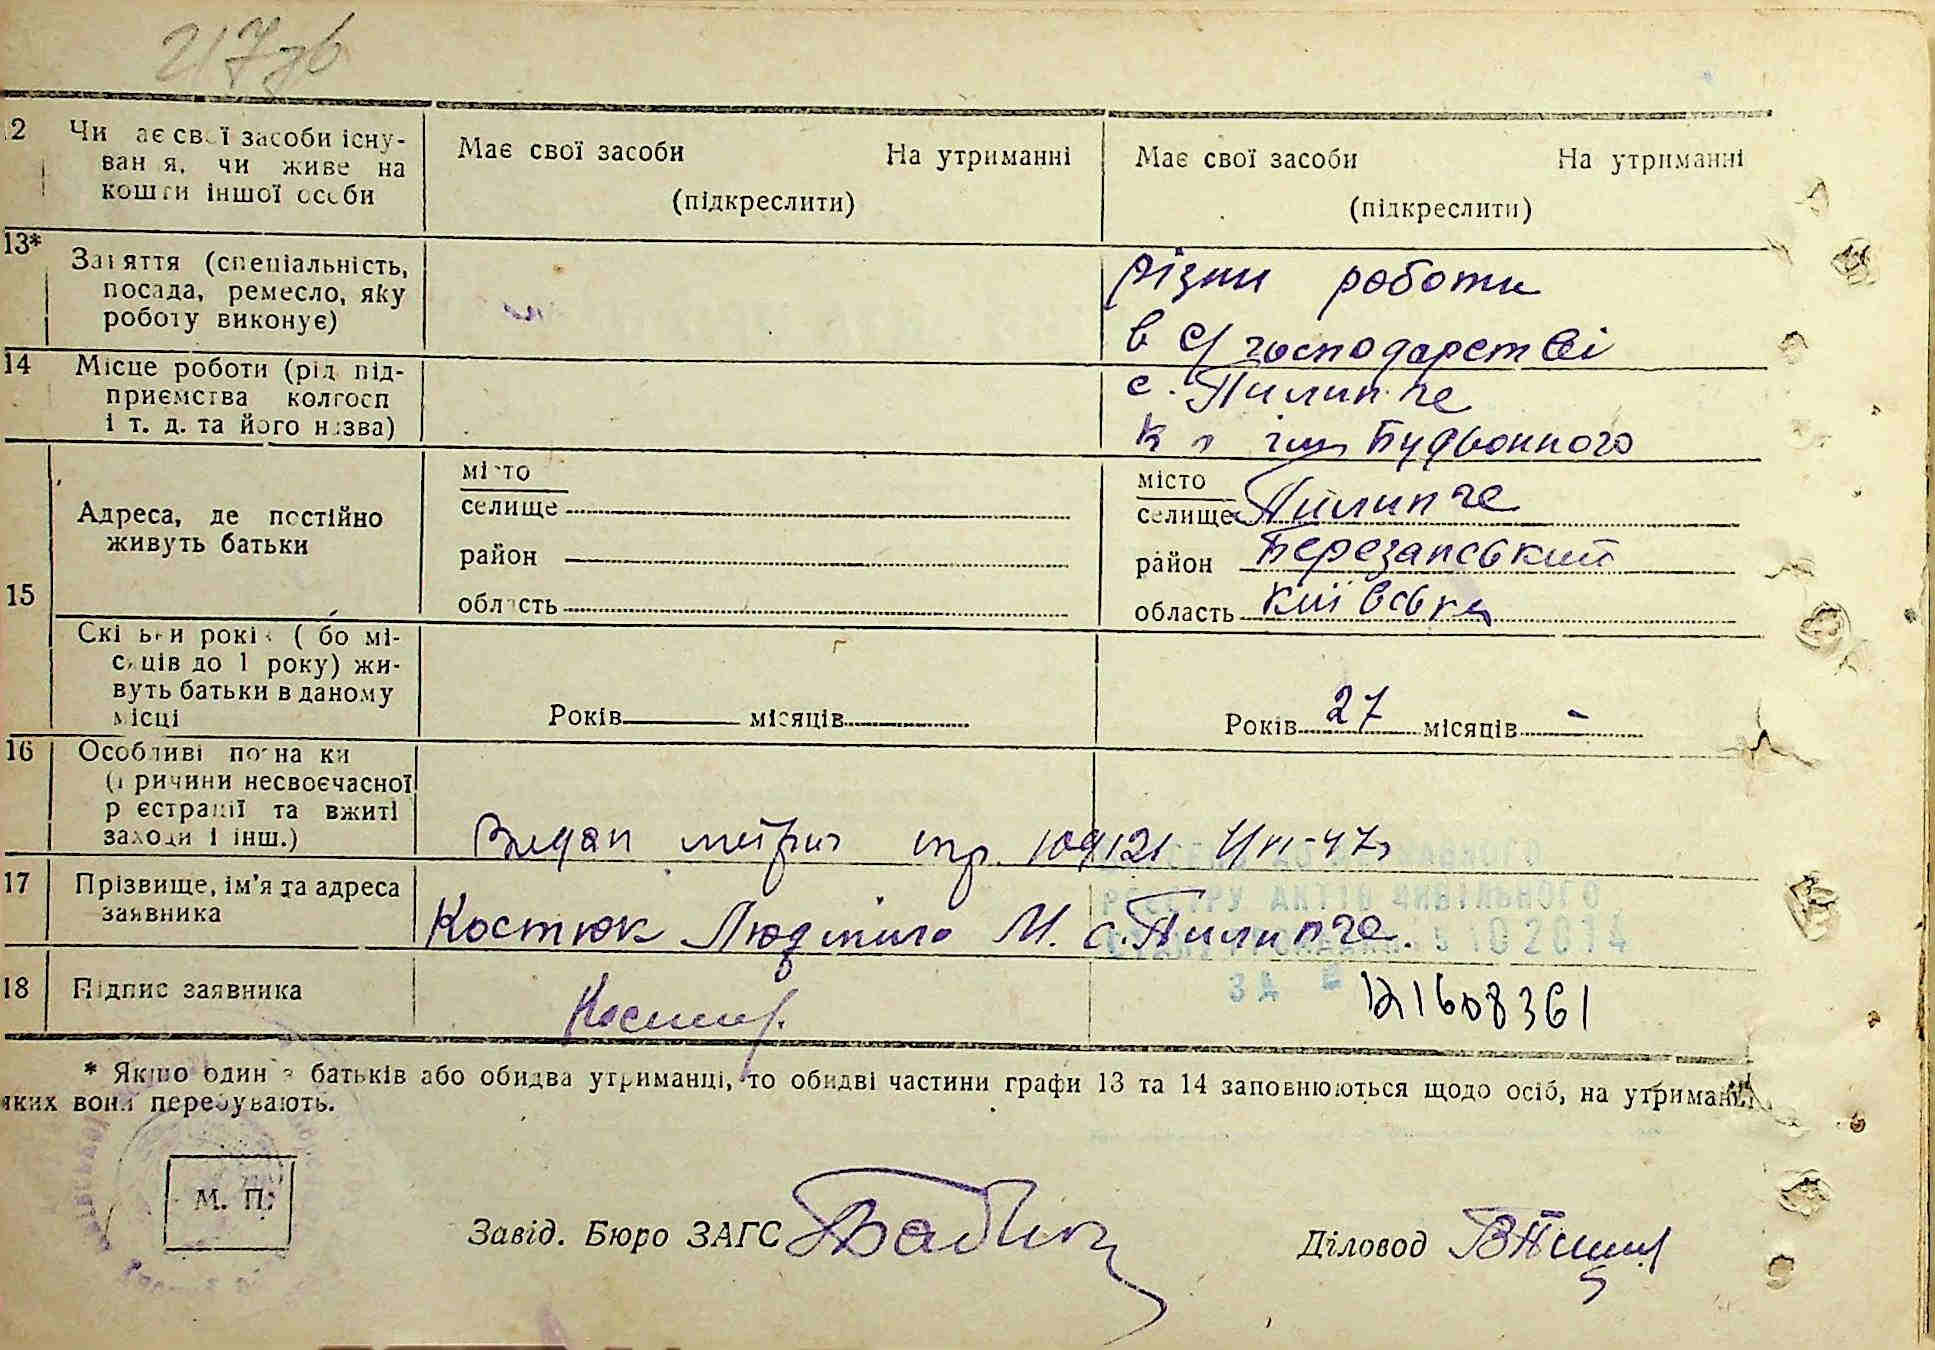 217зв
12 Чи має свої засоби існу-
вання, чи живе на
кошти іншої особи
Має свої засоби На утриманні
(підкреслити)
Має свої засоби На утриманні
(підкреслити)
13* Заняття (спеціальність,
посада, ремесло, яку
роботу виконує)
різни роботи
в с/господарстві
14 Місце роботи (рід під-
приємства колгосп
і т. д. та його назва)
с. Пилипче
к г ім Будьонного
15 Адреса, де постійно
живуть батьки
місто
селище
район
область
місто
селище Пилипче
район Березанський
область Київська
Скільки років (або мі-
сяців до 1 року) жи-
вуть батьки в даному
місці
Років місяців
Років 27 місяців -
16 Особливі познаки
(причини несвоєчасної
реєстрації та вжиті
заходи і інш.)
Видан метрич
17 Прізвище, ім'я та адреса
заявника
Костюк Людмила М. с. Пилипче.
РЕЄСТРУ АКТІВ ЦИВІЛЬНОГО
10 2014
ЗА №
18 Підпис заявника
121608361
* Якщо один з батьків або обидва утриманці, то обидві частини графи 13 та 14 заповнюються щодо осіб, на утриманні
яких вони перебувають.
М. П.
Завід. Бюро ЗАГС
Діловод